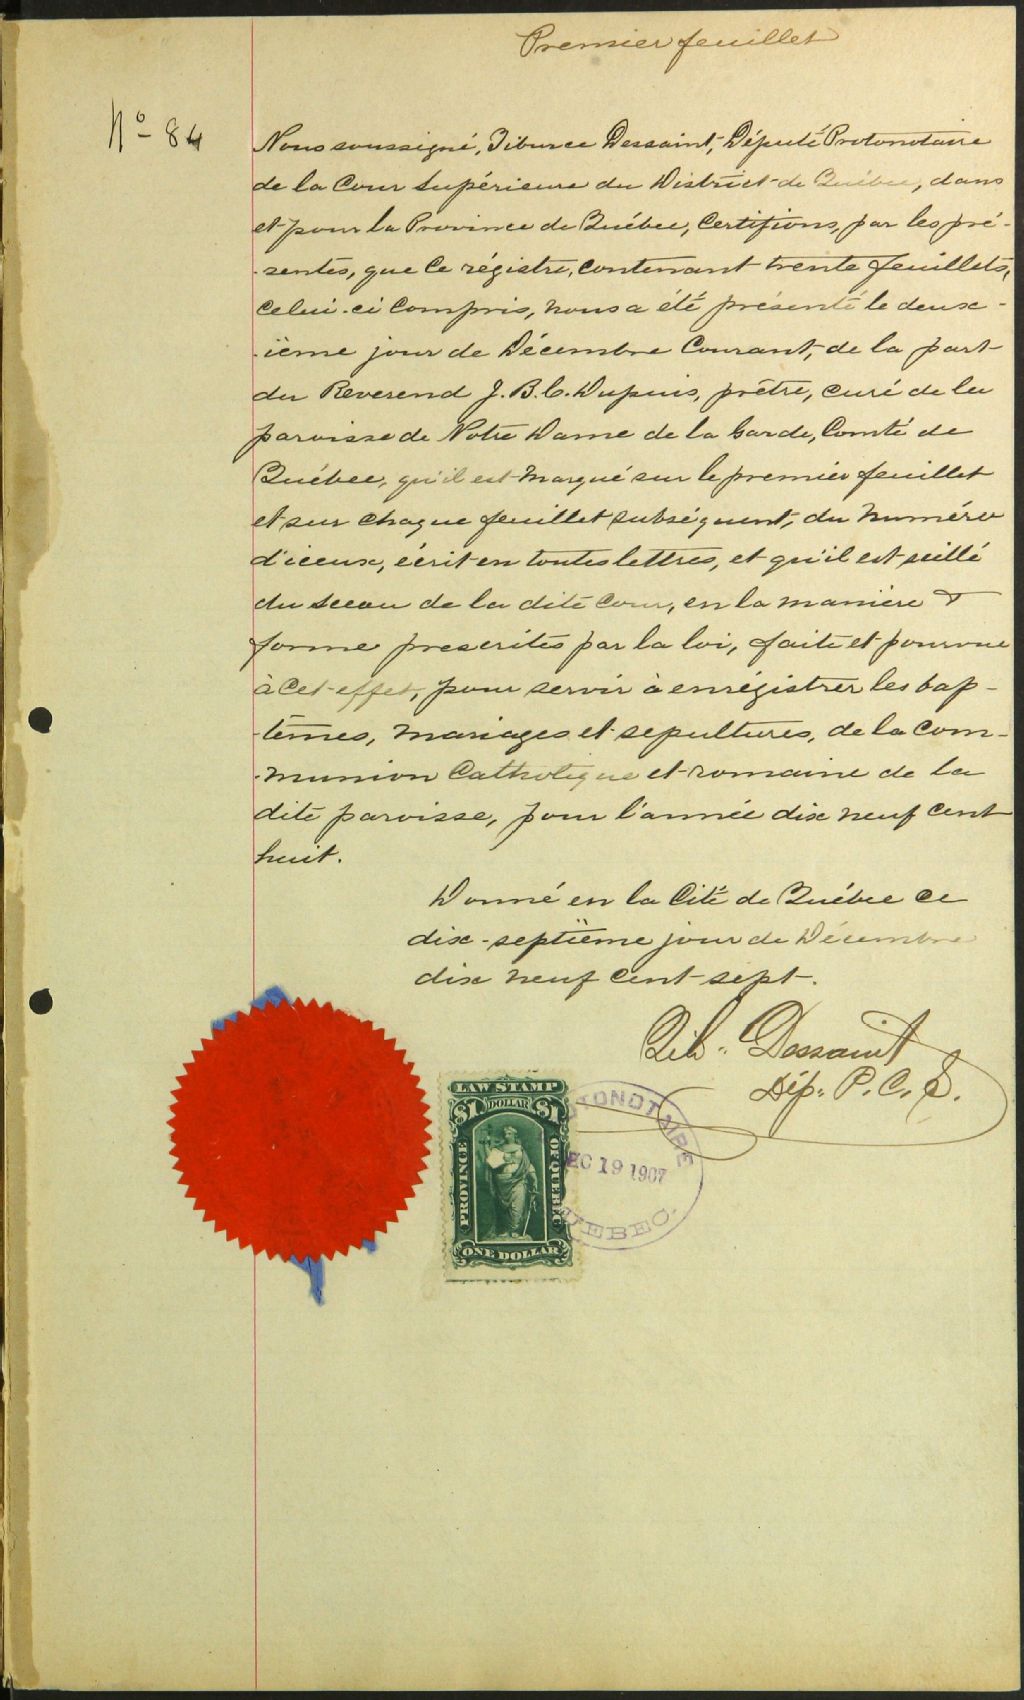 Premier feuillet
No 84
Nous soussigné, Tiburce Dessaint, Député Protonotaire
de la Cour Supérieure du District de Québec, dans
et pour la Province de Québec, Certifions, par les pré-
-sentes, que ce régistre, contenant trente feuillets,
celui-ci compris, nous a été présenté le deux-
-ième jour de Décembre Courant, de la part
du Reverend J. B. C. Dupuis, prêtre, curé de la
paroisse de Notre Dame de la Garde, Comté de
Québec, qu'il est marqué sur le premier feuillet
et sur chaque feuillet subséquent, du numéro
d'iceux, écrit en toutes lettres, et qu'il est scillé
du sceau de la dite Cour, en la manière &
forme prescrites par la loi, faite et pourvue
à cet effet, pour servir à enrégistrer les bap-
-têmes, mariages et sepultures, de la Com-
-munion Catholique et romaine de la
dite paroisse, pour l'année dix neuf cent
huit.
Donné en la Cité de Québec ce
dix-septième jour de Décembre
dix neuf cent sept.
Tib. Dessaint
Dép. P. C. S.
LAW STAMP
$1 DOLLAR $1
PROVINCE
OF QUEBEC
ONE DOLLAR
OTONOTAIRE
EC 19 1907
UEBEC.